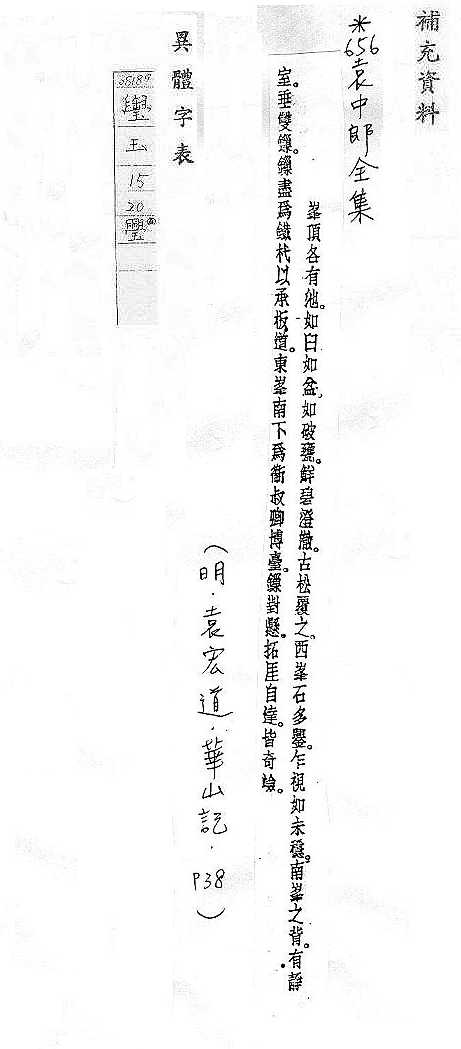 補充資料
※656袁中郎全集
峯頂各有池。如臼如盆、如破甕。鮮碧澄澈。古松覆之。西峯石多璺。乍視如未穩。南峯之背。有靜
室。垂雙鏁。鏁盡爲鐵杙以承板道。東峯南下爲衞叔卿博臺。鏁對懸。拓厓自達。皆奇嶮。
（明．袁宏道．華山記．P38）
異體字表
玉
15
20
璺